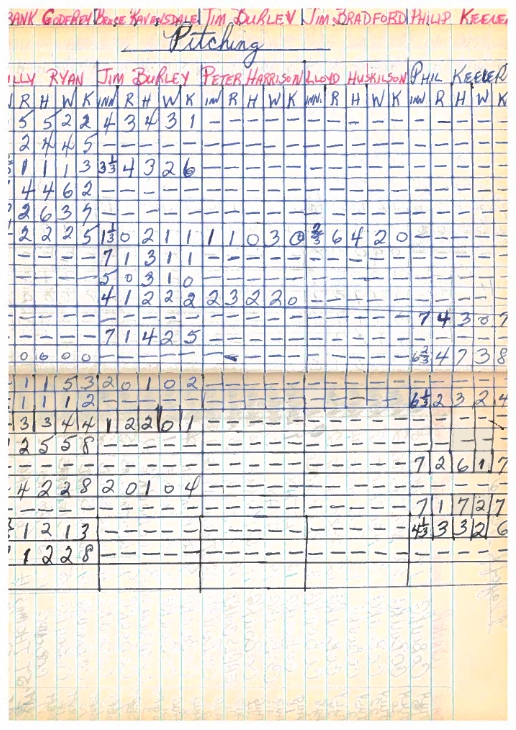 BANK GODFREY BRUCE RAVENSDALE JIM BURLEY JIM BRADFORD PHILIP KEELER
Pitching
ILLY RYAN JIM BURLEY PETER HARRISON LLOYD HUSKILSON PHIL KEELER
R H W K INN R H W K INN R H W K INN. R H W K INN R H W K
5 5 2 2 4 3 4 3 1 – – – – – – – – – – – – – – –
2 4 4 5 – – – – – – – – – – – – – – – – – – – –
1 1 1 3 3⅓ 4 3 2 6 – – – – – – – – – – – – – – –
4 4 6 2 – – – – – – – – – – – – – – – – – – – –
2 6 3 7 – – – – – – – – – – – – – – – – – – – –
2 2 2 5 1⅓ 0 2 1 1 1 1 0 3 0 ⅔ 6 4 2 0 – – – – –
– – – – 7 1 3 1 1 – – – – – – – – – – – – – – –
– – – – 5 0 3 1 0 – – – – – – – – – – – – – – –
– – – – 4 1 2 2 2 2 3 2 2 0 – – – – – – – – – –
– – – – – – – – – – – – – – – – – – – 7 4 3 0 7
– – – – 7 1 4 2 5 – – – – – – – – – – – – – – –
0 0 0 0 – – – – – – – – – – – – – – – 6⅔ 4 7 3 8
1 1 5 3 2 0 1 0 2 – – – – – – – – – – – – – – –
1 1 1 2 – – – – – – – – – – – – – – – 6⅓ 2 3 2 4
3 3 4 4 1 2 2 0 1 – – – – – – – – – – – – – – –
2 5 5 8 – – – – – – – – – – – – – – – – – – – –
– – – – – – – – – – – – – – – – – – – 7 2 6 1 7
4 2 2 8 2 0 1 0 4 – – – – – – – – – – – – – – –
– – – – – – – – – – – – – – – – – – – 7 1 7 2 7
1 2 1 3 – – – – – – – – – – – – – – – 4⅓ 3 3 2 6
1 2 2 8 – – – – – – – – – – – – – – – – – – – –